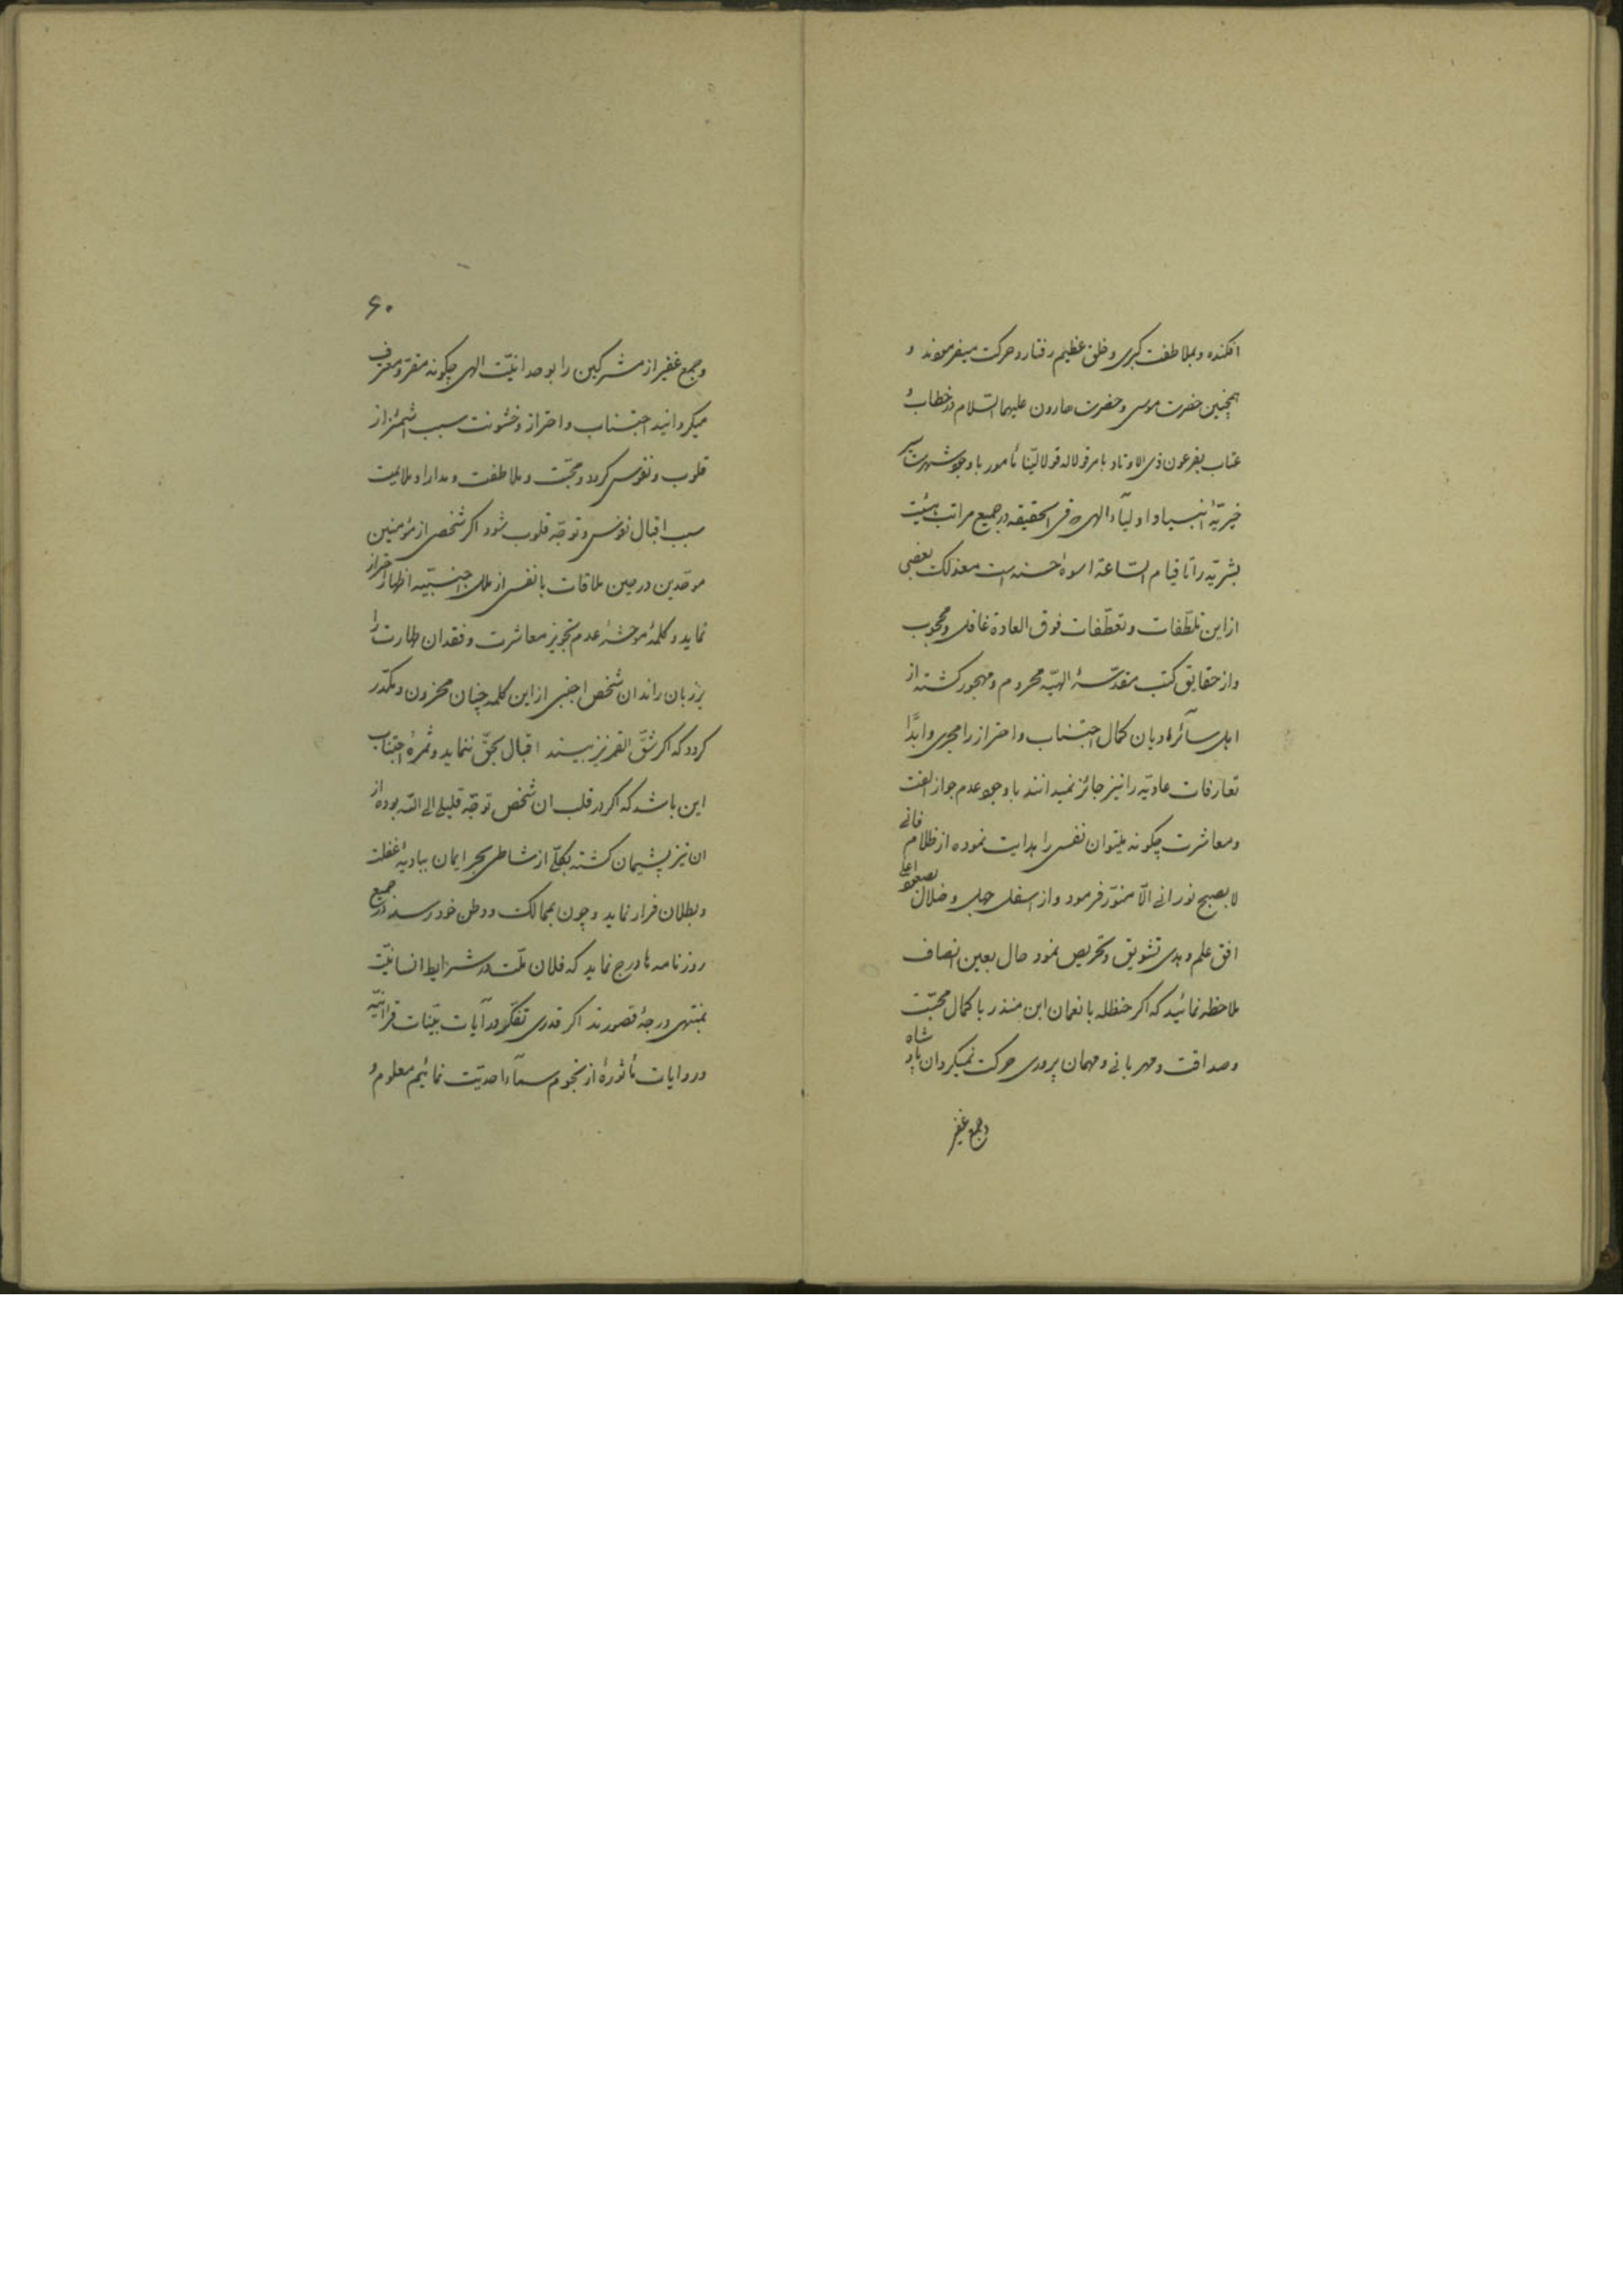 افکنده و بملاطفت کبری و خلق عظیم رفتار و حرکت میفرمودند و
همچنین حضرت موسی و حضرت هارون علیهما السّلام در خطاب و
عتاب بفرعون ذی الاوتاد بامر قولا له قولا لیّنا مأمور با وجود شهرت سیر
خیریّهٔ انبیاء و اولیآء الهی که فی الحقیقه در جمیع مراتب هیئت
بشریّه را تا قیام السّاعة اسوهٔ حسنه است معذلک بعضی
از این تلطّفات و تعطّفات فوق العاده غافل و محجوب
و از حقایق کتب مقدّسهٔ الهیّه محروم و مهجور کشته از
اهل سآئره ادیان کمال اجتناب و احتراز را مجری و ابدًا
تعارفات عادیّه را نیز جائز نمیدانند با وجود عدم جواز الفت
و معاشرت چکونه میتوان نفسی را هدایت نموده از ظلام فانی
لا بصبح نورانی الّا منوّر فرمود و از اسفل جهل و ضلال بصعود اعلی
افق علم و هدی تشویق و تحریص نمود حال بعین انصاف
ملاحظه نمائید که اکر حنظله با نعمان ابن منذر با کمال محبّت
و صداقت و مهربانی و مهمان پروری حرکت نمیکرد ان پادشاه
و جمع غفیر
۶۰
و جمع غفیر از مشرکین را بوحدانیّت الهی چکونه مقرّ و معترف
میکردانید اجتناب و احتراز و خشونت سبب اشمئزاز
قلوب و نفوس کردد و محبّت و ملاطفت و مدارا و ملایمت
سبب اقبال نفوس و توجّه قلوب شود اکر شخصی از مؤمنین
موحّدین در حین ملاقات با نفسی از ملل اجنبیّه اظهار احتراز
نماید و کلمهٔ موحشهٔ عدم تجویز معاشرت و فقدان طهارت را
بر زبان راند ان شخص اجنبی از این کلمه چنان محزون و مکدّر
کردد که اکر شقّ القمر نیز بیند اقبال بحقّ ننماید و ثمرهٔ اجتناب
این باشد که اکر در قلب ان شخص توجّه قلیلی الی اللّه بوده از
ان نیز پشیمان کشته بکلّی از شاطی بحر ایمان ببادیهٔ غفلت
و بطلان فرار نماید و چون بممالک و وطن خود رسد در جمیع
روزنامه ها درج نماید که فلان ملّت در شرایط انسانیّت
بمنتهی درجهٔ قصورند اکر قدری تفکّر در آیات بیّنات قرآنیّه
و روایات مأثورهٔ از نجوم سمآء احدیّت نمائیم معلوم و